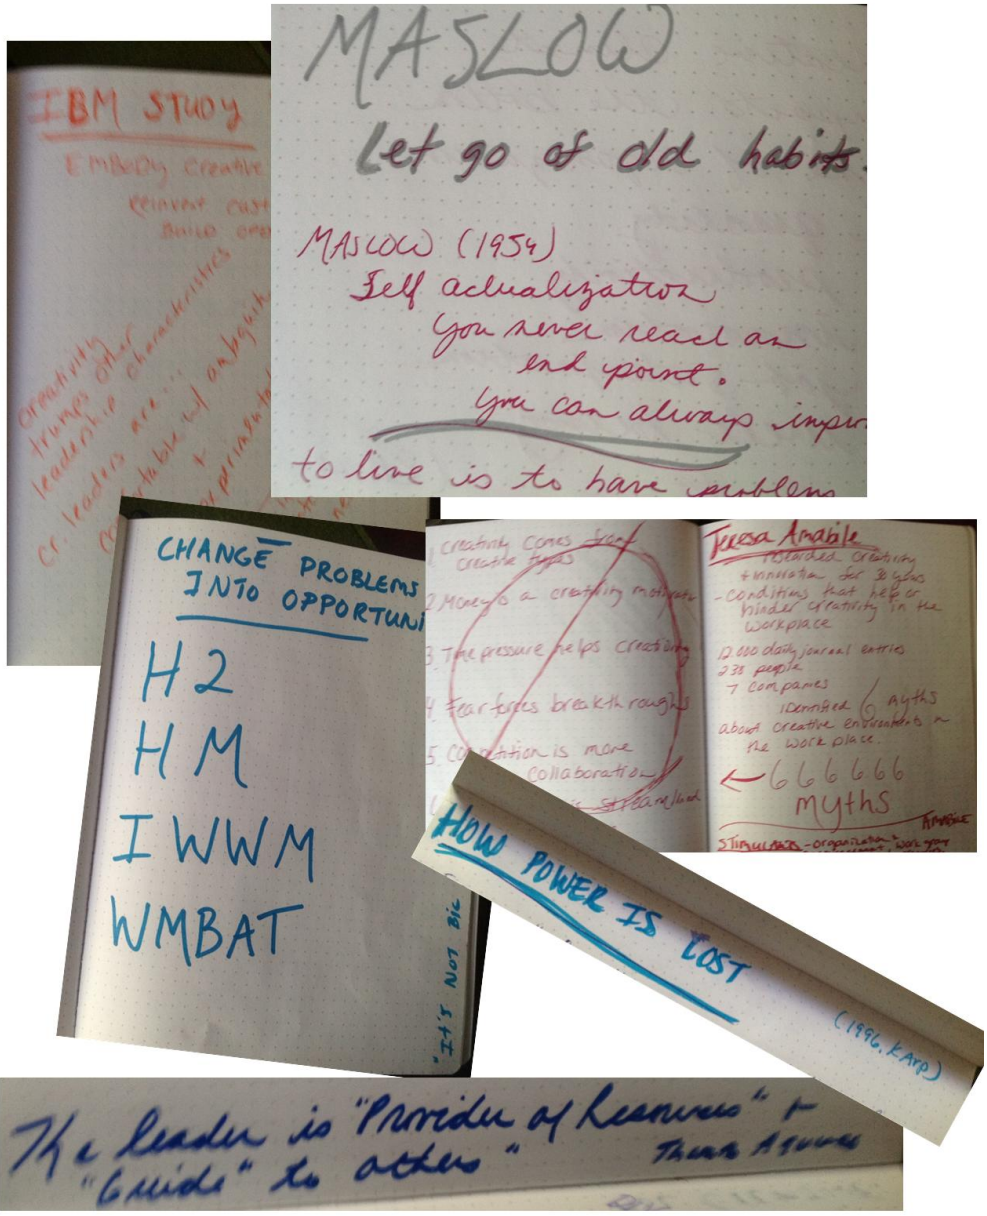 IBM STUDY
EMBODY Creative
Reinvent
BUILD
creativity
trumps other
leadership characteristics
cr. leaders are...
w/ ambiguit
+
MASLOW
Let go of old habits.
MASLOW (1954)
Self actualization
you never reach an
end point.
you can always impr
to live is to have problems
CHANGE PROBLEMS
INTO OPPORTUNI
H2
HM
IWWM
WMBAT
"It's NOT Big
1. Creativity comes from
creative types
2. Money is a creativity motivator
3. Time pressure helps creativity
4. Fear forces breakthroughs
5. Competition is more
collaboration
is streamlined
Teresa Amabile
researched creativity
+ innovation for 30 years
- conditions that help or
hinder creativity in the
workplace
12,000 daily journal entries
238 people
7 companies
identified 6 myths
about creative environments in
the work place.
← 6 6 6 6 6 6
myths
AMABILE
STIMULANTS - organizational
HOW POWER IS LOST
(1996, KArp)
The leader is "Provider of Resources" +
"Guide" to others"